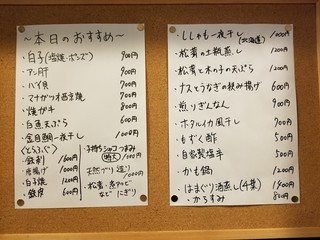 ～本日のおすすめ～
・白子(塩焼・ポン酢) 900円
・アン肝 900円
・バイ貝 700円
・マナガツオ西京焼 700円
・焼ガキ 800円
・白魚天ぷら 600円
・金目鯛一夜干し 1000円
(とらふぐ)
・鉄刺 1600円
・唐揚げ 1000円
・白子焼 1200円
・鉄皮 600円
・子持ちシャコつまみ
(特大) 1000円
天然ブリ造り 1000円
・松茸、
など にぎり
・ししゃも一夜干し(北海道) 1000円
・松茸の土瓶蒸し 1200円
・松茸と木の子の天ぷら 1200円
・ナスとうなぎの挟み揚げ 600円
・煎りぎんなん 900円
・ホタルイカ風干し 700円
・もずく酢 500円
・自家製塩辛 500円
・かも鍋 1200円
・はまぐり酒蒸し(4ケ) 1900円
・からすみ 800円